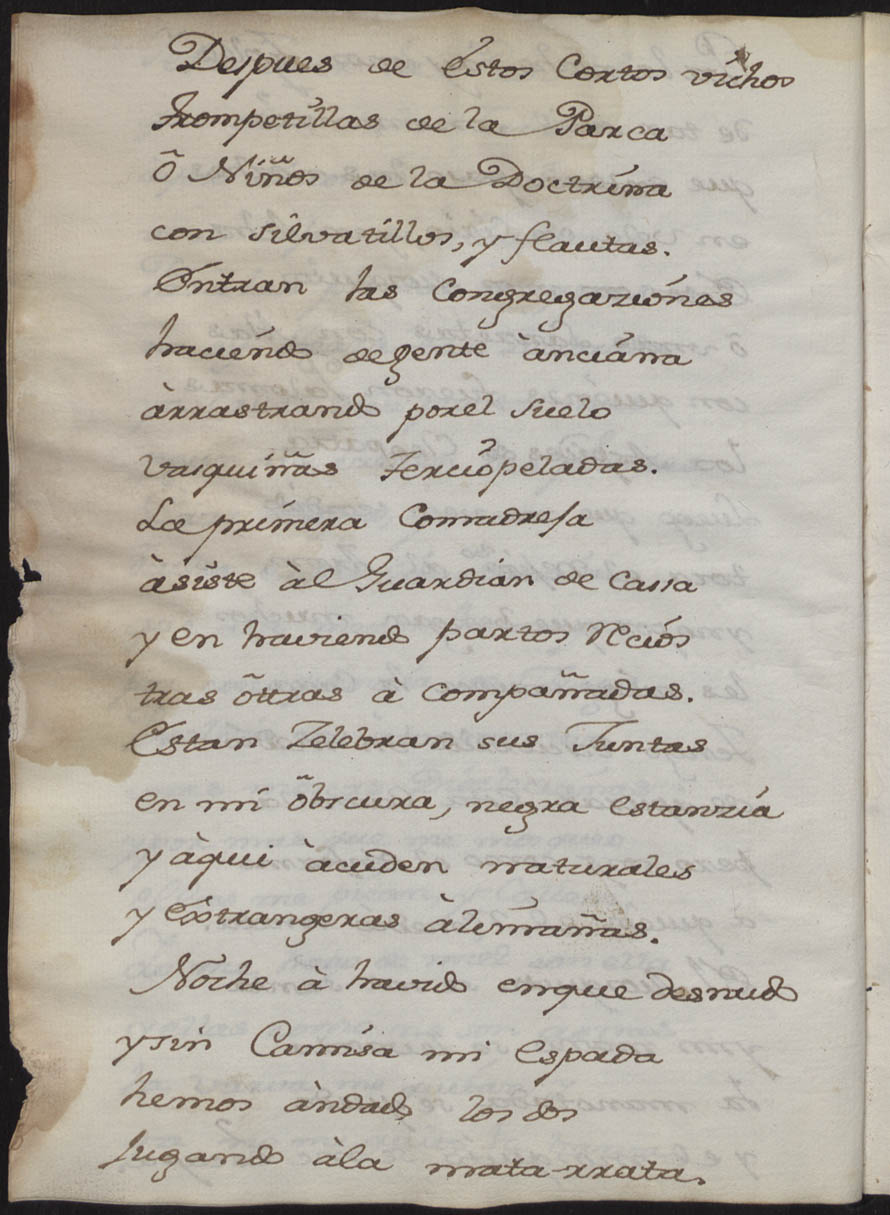 Despues de éstos Cortos vichos
trompetillas de la Parca
õ Niños de la Doctrina
con silvatillos, y flautas.
Entran las Congregaziónes
haciéndo de gente ànciána
àrrastrando por el suelo
vasquiñas Terciópeladas.
La primera Comadreja
àsiste àl Guardián de Cassa
y en haviendo partos
tras õttras à compañadas.
Estan Zelebran sus Juntas
en mi õbscura, negra estanzia
y àqui àcuden naturales
y extrangeras àlemañas.
Noche à havido en que desnudo
y sin Camisa mi espada
hemos àndado los dos
Jugando àla mata-rrata.